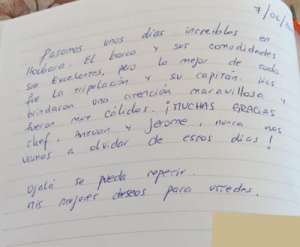 7/06/
Pasamos unos días increíbles en
El barco y sus comodidades
son excelentes, pero lo mejor de todo
fue la tripulación y su capitán. Nos
brindaron una atención maravillosa y
fueron muy cálidos. ¡MUCHAS GRACIAS
chef, y Jerome, nunca nos
vamos a olvidar de estos días!
Ojalá se pueda repetir.
Mis mejores deseos para ustedes.